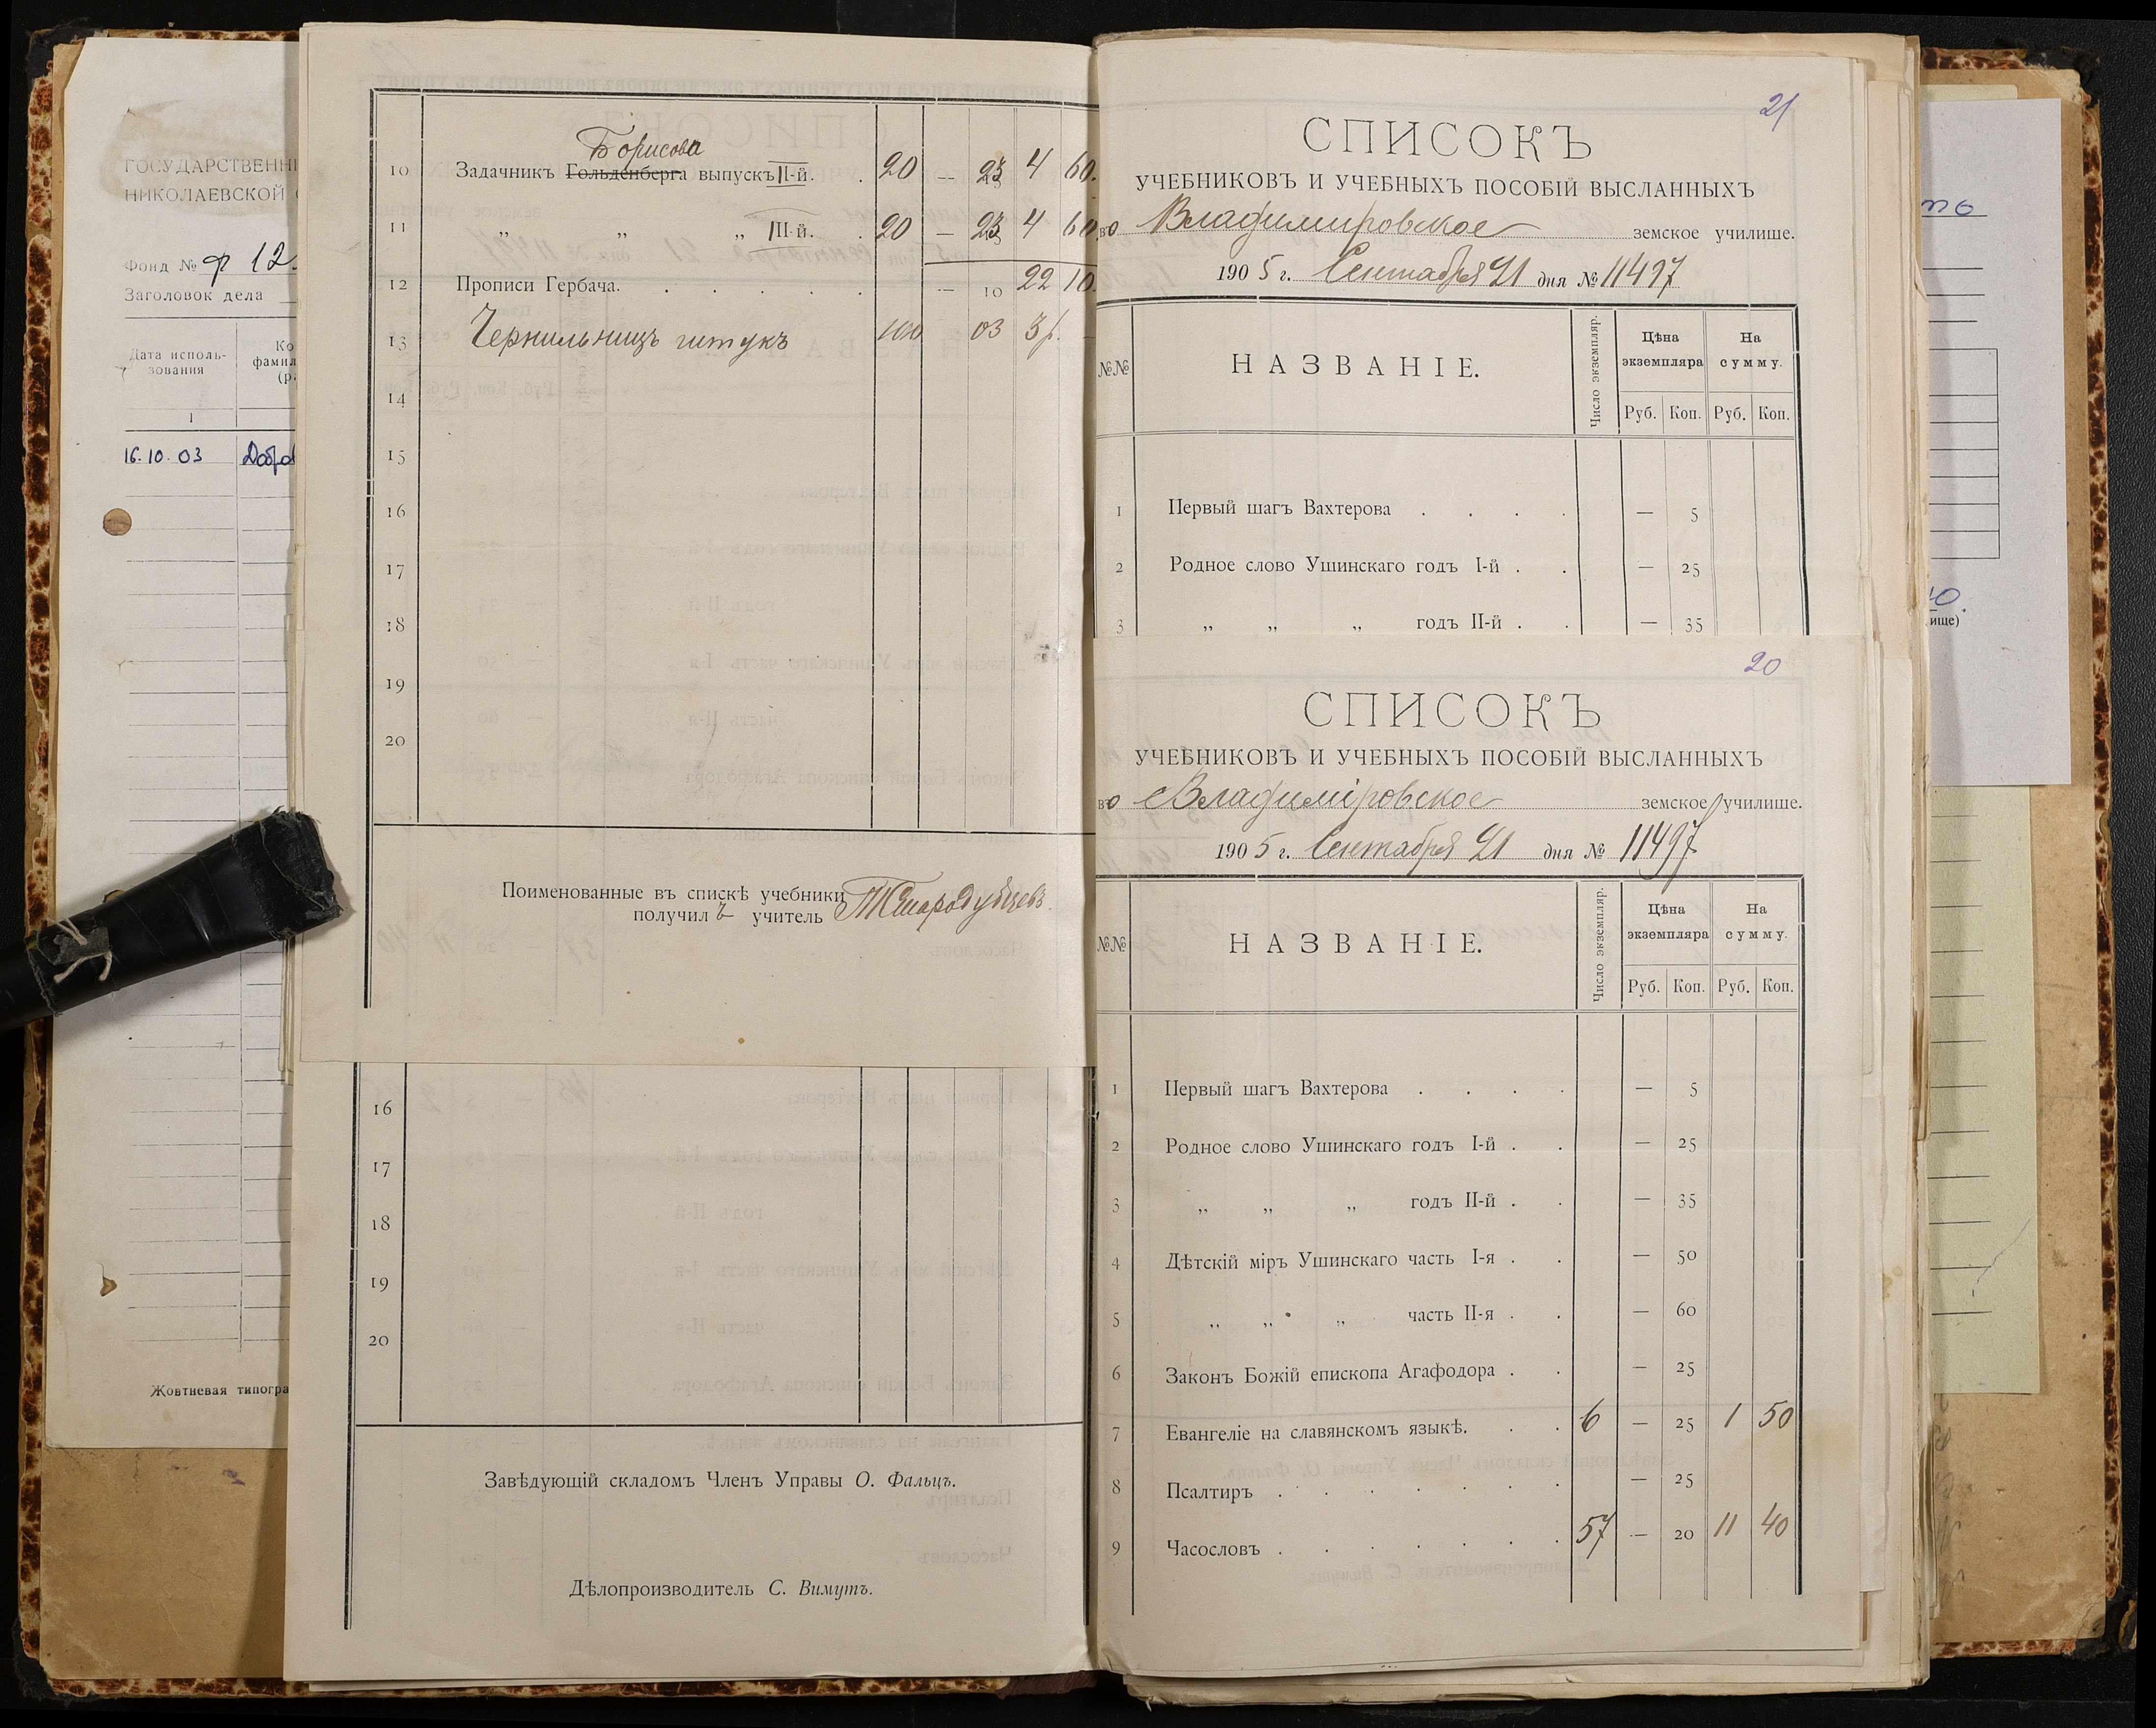 ГОСУДАРСТВЕНН
НИКОЛАЕВСКОЙ
Фонд № ф 12
Заголовок дела
Дата исполь-
зования
Ко
фамил
1
16.10.03 Добро
Жовтневая типогра
Борисова
10 Задачникъ Гольденберга выпускъ II-й. . 20 — 23 4 60.
11 „ „ „ III-й. . 20 — 23 4 60
12 Прописи Гербача. . . . . . — 10 22 10.
13 Чернильницъ штукъ 100 03 3 р. —
14
15
16
17
18
19
20
Поименованные въ спискѣ учебники
получилъ учитель
16
17
18
19
20
Завѣдующій складомъ Членъ Управы О. Фальцъ.
Дѣлопроизводитель С. Вимутъ.
21
СПИСОКЪ
УЧЕБНИКОВЪ И УЧЕБНЫХЪ ПОСОБІЙ ВЫСЛАННЫХЪ
во Владимировское земское училище.
1905 г. Сентября 21 дня № 11497
№№ НАЗВАНІЕ. Число экземпляр. Цѣна экземпляра На сумму.
Руб. Коп. Руб. Коп.
1 Первый шагъ Вахтерова . . . . — 5
2 Родное слово Ушинскаго годъ I-й . . — 25
3 „ „ „ годъ II-й . . — 35
20
СПИСОКЪ
УЧЕБНИКОВЪ И УЧЕБНЫХЪ ПОСОБІЙ ВЫСЛАННЫХЪ
во Владиміровское земское училище.
1905 г. Сентября 21 дня № 11497
№№ НАЗВАНІЕ. Число экземпляр. Цѣна экземпляра На сумму.
Руб. Коп. Руб. Коп.
1 Первый шагъ Вахтерова . . . . — 5
2 Родное слово Ушинскаго годъ I-й . . — 25
3 „ „ „ годъ II-й . . — 35
4 Дѣтскій міръ Ушинскаго часть I-я . . — 50
5 „ „ „ часть II-я . . — 60
6 Законъ Божій епископа Агафодора . . — 25
7 Евангеліе на славянскомъ языкѣ. . . 6 — 25 1 50
8 Псалтиръ . . . . . . . — 25
9 Часословъ . . . . . . . 57 — 20 11 40
ище)